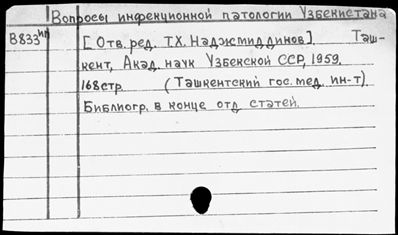 Вопросы инфекционной патологии Узбекистана
В833ип
[Отв. ред. Т.Х. Наджмиддинов]. Таш-
кент, Акад. наук Узбекской ССР, 1959.
168стр. (Ташкентский гос. мед. ин-т).
Библиогр. в конце отд. статей.